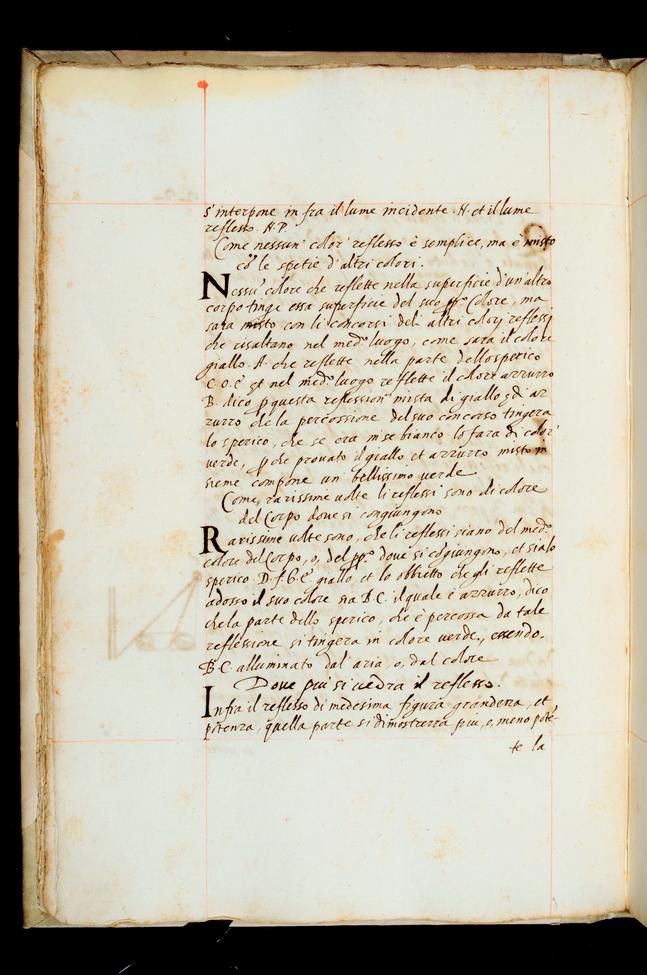 s'interpone in fra il lume incidente .H. et il lume
reflesso .H.P.
Come nessun' color' reflesso è semplice, ma è misto
cõ le spetie d'altri colori.
Nessũ colore che reflette nella superficie d'un'altro
corpo tinge essa superficie del suo ppº Colore, ma
sara misto con li concorsi deli altri colorj reflessj
che risaltano nel medº luogo, come sara il colore
giallo .A. che reflette nella parte dellosperico
C.O.E. et nel medº luogo reflette il colore azzurro
B. dico p questa reflession' mista di giallo et d'az
zurro che la percossione del suo concorso tingera
lo sperico, che se era in se bianco lo fara di color'
verde, p che provato il giallo et azzurro misto in
sieme compone un' bellissimo verde
Come, rarissime uolte li reflessi sono di colore
del Corpo doue si congiungono
Rarissime uolte sono, che li reflessi siano del medº
colore del Corpo, o, del ppº doue si cõgiungono, et sia lo
sperico .D.f.G.e' giallo, et lo obbietto che gli reflette
adosso il suo colore sia B.C. il quale è azzurro, dico
che la parte dello sperico, che è percossa da tale
reflessione si tingera in colore verde, essendo.
B.C. alluminato dal'aria, o, dal colore
Doue piu si uedra il reflesso.
Infra il reflesso di medesima figura grandezza, et
potenza, quella parte si dimostrerra piu, o, meno potẽ-
te la